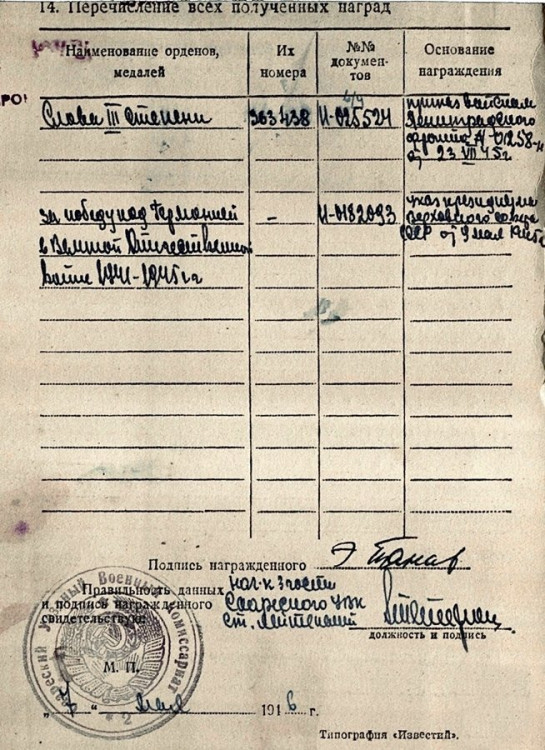 14. Перечисление всех полученных наград
Наименование орденов, медалей
Их номера
№№ документов
Основание награждения
Слава III степени
363438
И-025524
приказ войскам
Ленинградского
фронта
23 VII 45 г.
за победу над Германией
-
И-0182093
указ президиума
верховного совета
СССР от 9 мая
в Великой Отечественной
войне 1941-1945 г.г.
Подпись награжденного
Правильность данных
и подпись награжденного
свидетельствую:
нач. к 3 части
Сааремского УВК
ст. лейтенант
должность и подпись
Уездный Военный Комиссариат
М. П.
"7" мая 1946 г.
Типография «Известий».